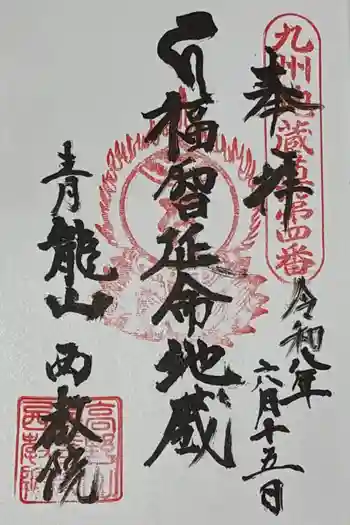 九州地蔵尊第四番
奉拝
令和八年
六月十五日
福智延命地蔵
青龍山 西教院